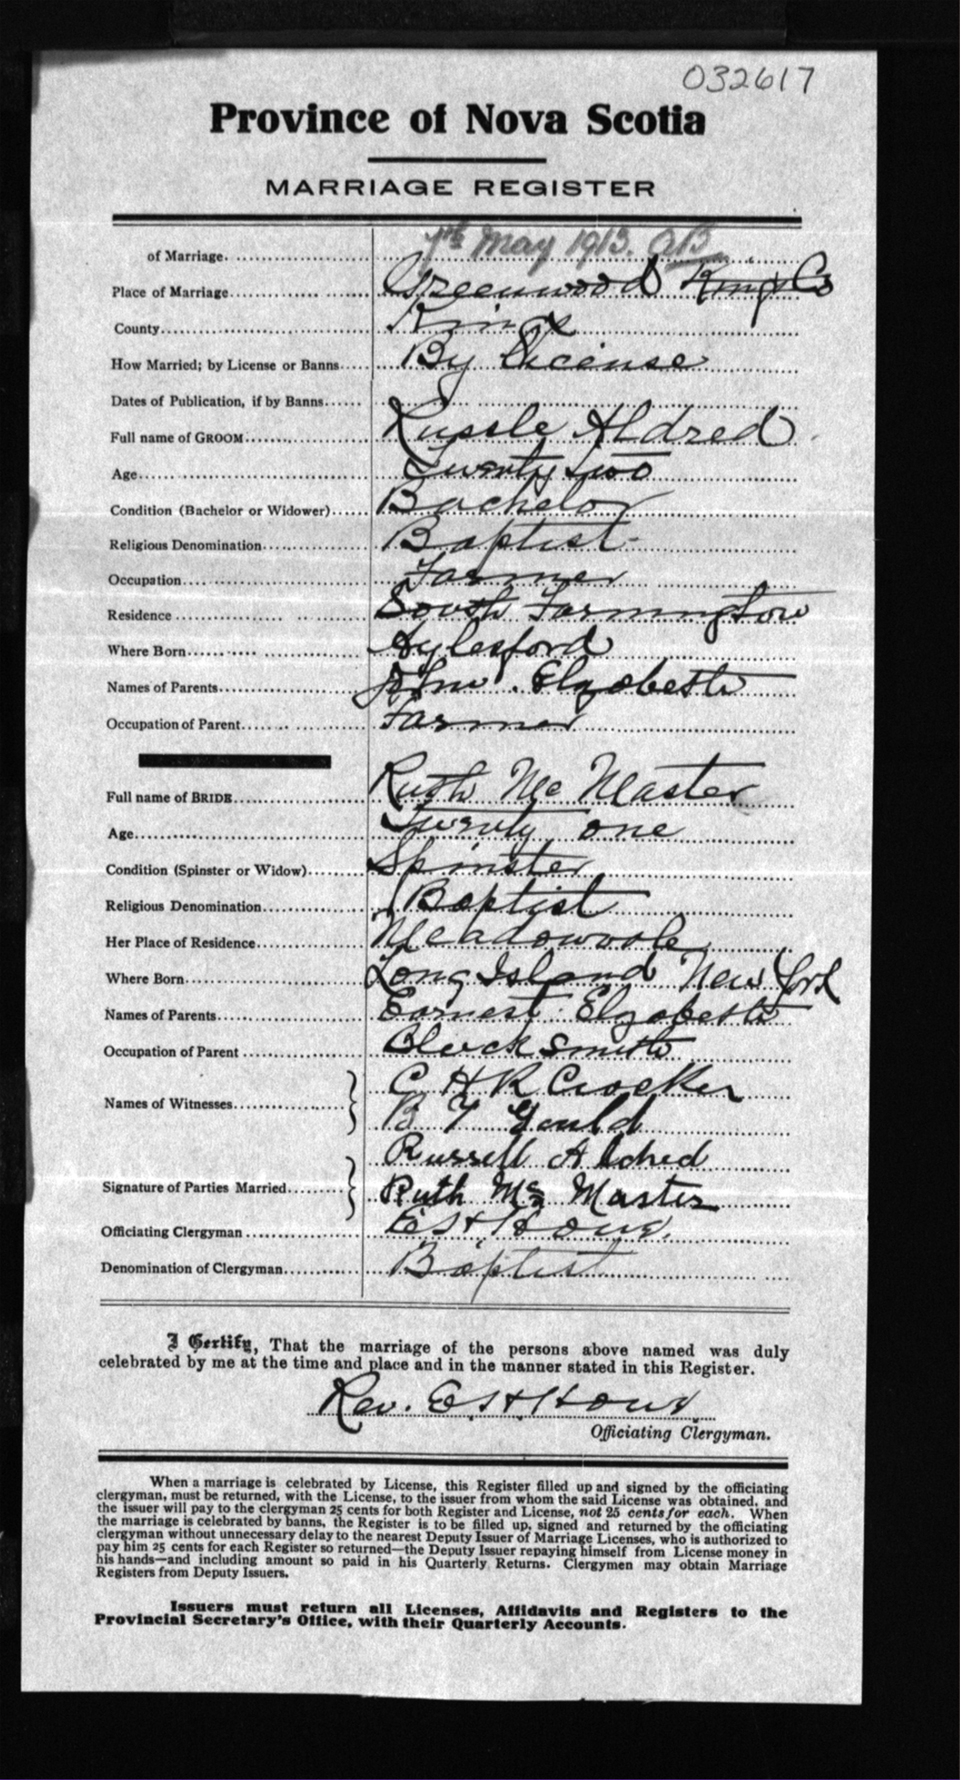 032617
Province of Nova Scotia
MARRIAGE REGISTER
of Marriage 7th May 1913. AB
Place of Marriage Greenwood Kings Co
County Kings
How Married; by License or Banns By License
Dates of Publication, if by Banns
Full name of GROOM Russle Aldred
Age Twenty two
Condition (Bachelor or Widower) Bachelor
Religious Denomination Baptist
Occupation Farmer
Residence South Farmington
Where Born Aylesford
Names of Parents John . Elzabeth
Occupation of Parent Farmer
Full name of BRIDE Ruth Mc Master
Age Twenty one
Condition (Spinster or Widow) Spinster
Religious Denomination Baptist
Her Place of Residence Meadowvale
Where Born Long Island New York
Names of Parents Earnest Elzabeth
Occupation of Parent Blacksmith
C H R Crocker
Names of Witnesses
B Y Gould
Russell Aldred
Signature of Parties Married
Ruth Mc Master
Officiating Clergyman E S H
Denomination of Clergyman Baptist
I Certify, That the marriage of the persons above named was duly
celebrated by me at the time and place and in the manner stated in this Register.
Rev. E. S. H.
Officiating Clergyman.
When a marriage is celebrated by License, this Register filled up and signed by the officiating
clergyman, must be returned, with the License, to the issuer from whom the said License was obtained, and
the issuer will pay to the clergyman 25 cents for both Register and License, not 25 cents for each. When
the marriage is celebrated by banns, the Register is to be filled up, signed and returned by the officiating
clergyman without unnecessary delay to the nearest Deputy Issuer of Marriage Licenses, who is authorized to
pay him 25 cents for each Register so returned—the Deputy Issuer repaying himself from License money in
his hands—and including amount so paid in his Quarterly Returns. Clergymen may obtain Marriage
Registers from Deputy Issuers.
Issuers must return all Licenses, Affidavits and Registers to the
Provincial Secretary's Office, with their Quarterly Accounts.